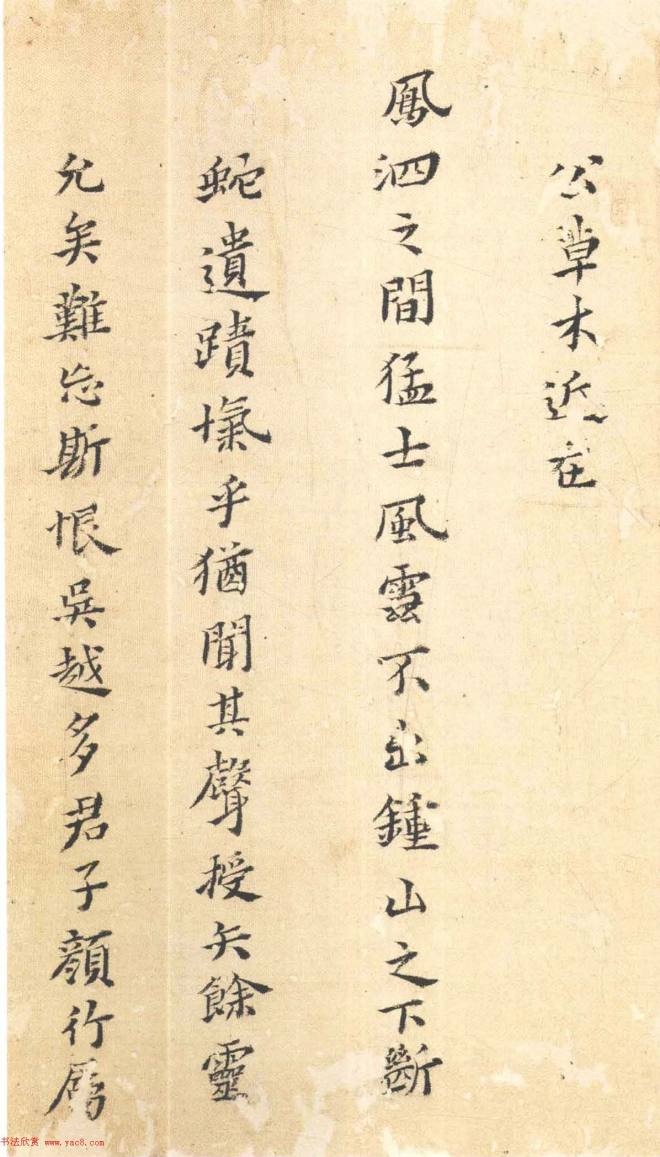 公草木近在
鳳泗之間猛士風雲不出鍾山之下斷
蛇遺蹟愾乎猶聞其聲授矢餘靈
允矣難忘斯恨吳越多君子顏行
书法欣赏 www.yac8.com